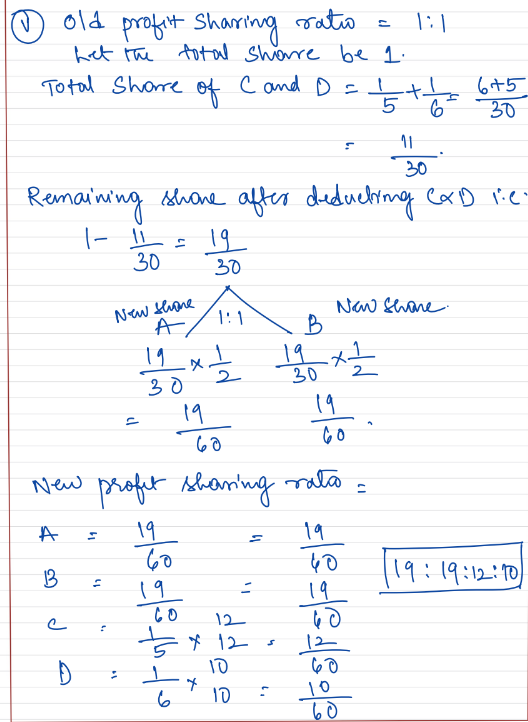 (v) Old profit sharing ratio = 1:1
Let the total share be 1.
Total Share of C and D = 1/5 + 1/6 = 6+5/30
= 11/30.
Remaining share after deducting C & D i.e.
1 - 11/30 = 19/30
New share A 1:1 B New share.
19/30 × 1/2 19/30 × 1/2
= 19/60 19/60.
New profit sharing ratio =
A = 19/60 = 19/60
B = 19/60 = 19/60
C = 1/5 × 12/12 = 12/60
D = 1/6 × 10/10 = 10/60
19:19:12:10